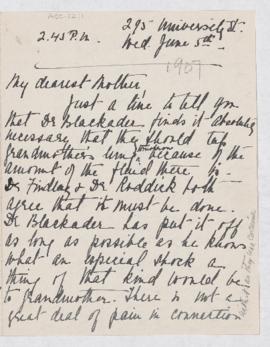 295 University St.
2.45 P.M. Wed. June 5th.
1907
My dearest Mother,
Just a line to tell you
that Dr Blackader finds it absolutely
necessary that they should tap
Grandmother's lung because of the
amount of the fluid there is.
Dr Findlay & Dr Roddick both
agree that it must be done.
Dr Blackader has put it off
as long as possible as he knows
what an especial shock a
thing of that kind would be
to Grandmother. There is not a
great deal of pain in connection